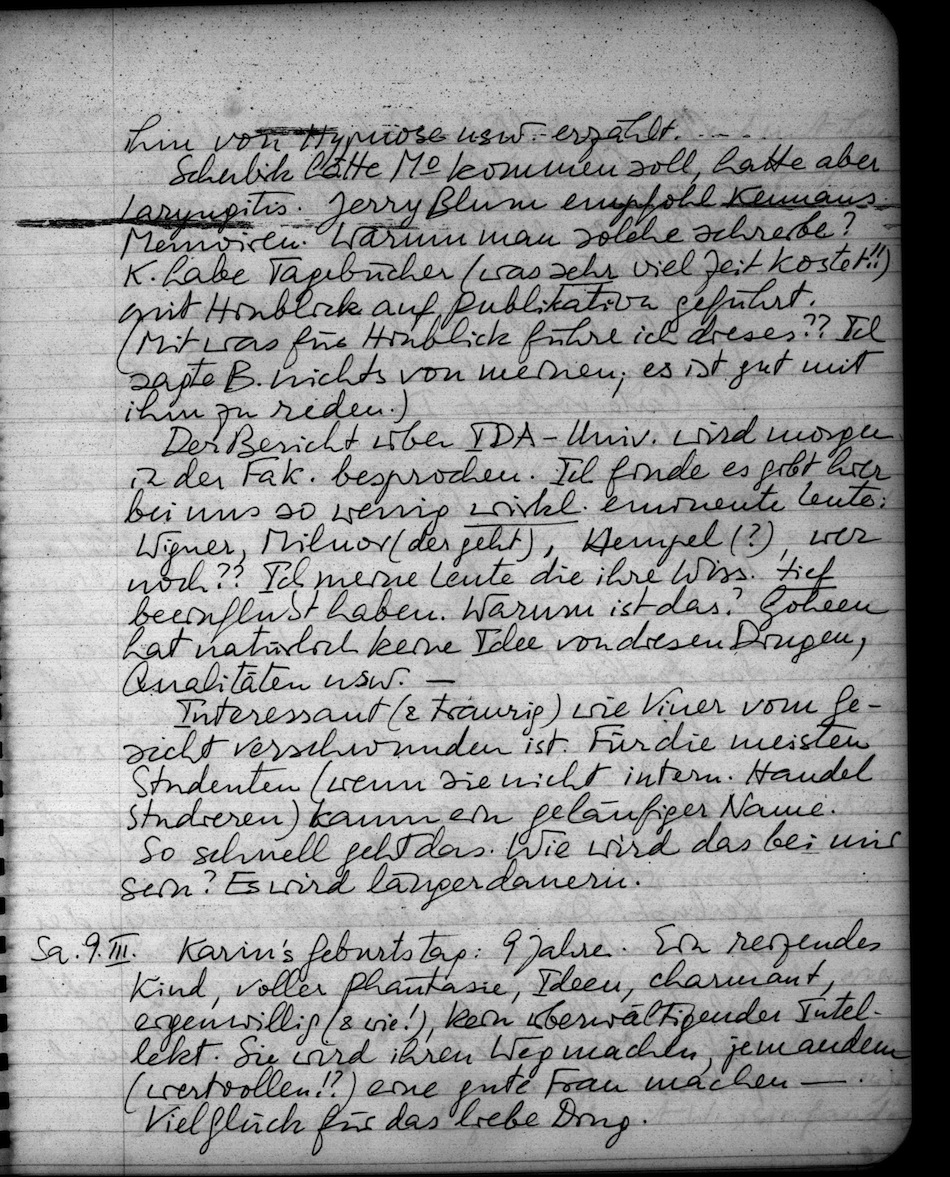 ihm von Hypnose usw. erzählt. - - - -
Scherbik hätte Mo kommen soll, hatte aber
Laryngitis. Jerry Blum empfohl Kennans
Memoiren. Warum man solche schreibe?
K. habe Tagebücher (was sehr viel Zeit kostet!!)
mit Hinblick auf Publikation geführt.
(Mit was für Hinblick führe ich dieses?? Ich
sagte B. nichts von meinen; es ist gut mit
ihm zu reden.)
Der Bericht über IDA-Univ. wird morgen
in der Fak. besprochen. Ich finde es gibt hier
bei uns so wenig wirkl. eminente Leute:
Wigner, Milnor (der geht), Hempel (?), wer
noch?? Ich meine Leute die ihre Wiss. tief
beeinflusst haben. Warum ist das? Goheen
hat natürlich keine Idee von diesen Dingen,
Qualitäten usw. —
Interessant (& traurig) wie Viner vom Ge-
sicht verschwunden ist. Für die meisten
Studenten (wenn sie nicht intern. Handel
studieren) kaum ein geläufiger Name.
So schnell geht das. Wie wird das bei mir
sein? Es wird länger dauern.
Sa. 9. III. Karin's Geburtstag: 9 Jahre. Ein reizendes
Kind, voller Phantasie, Ideen, charmant,
eigenwillig (& wie!), kein überwältigender Intel-
lekt. Sie wird ihren Weg machen, jemandem
(wertvollen!?) eine gute Frau machen — .
Viel Glück für das liebe Ding.